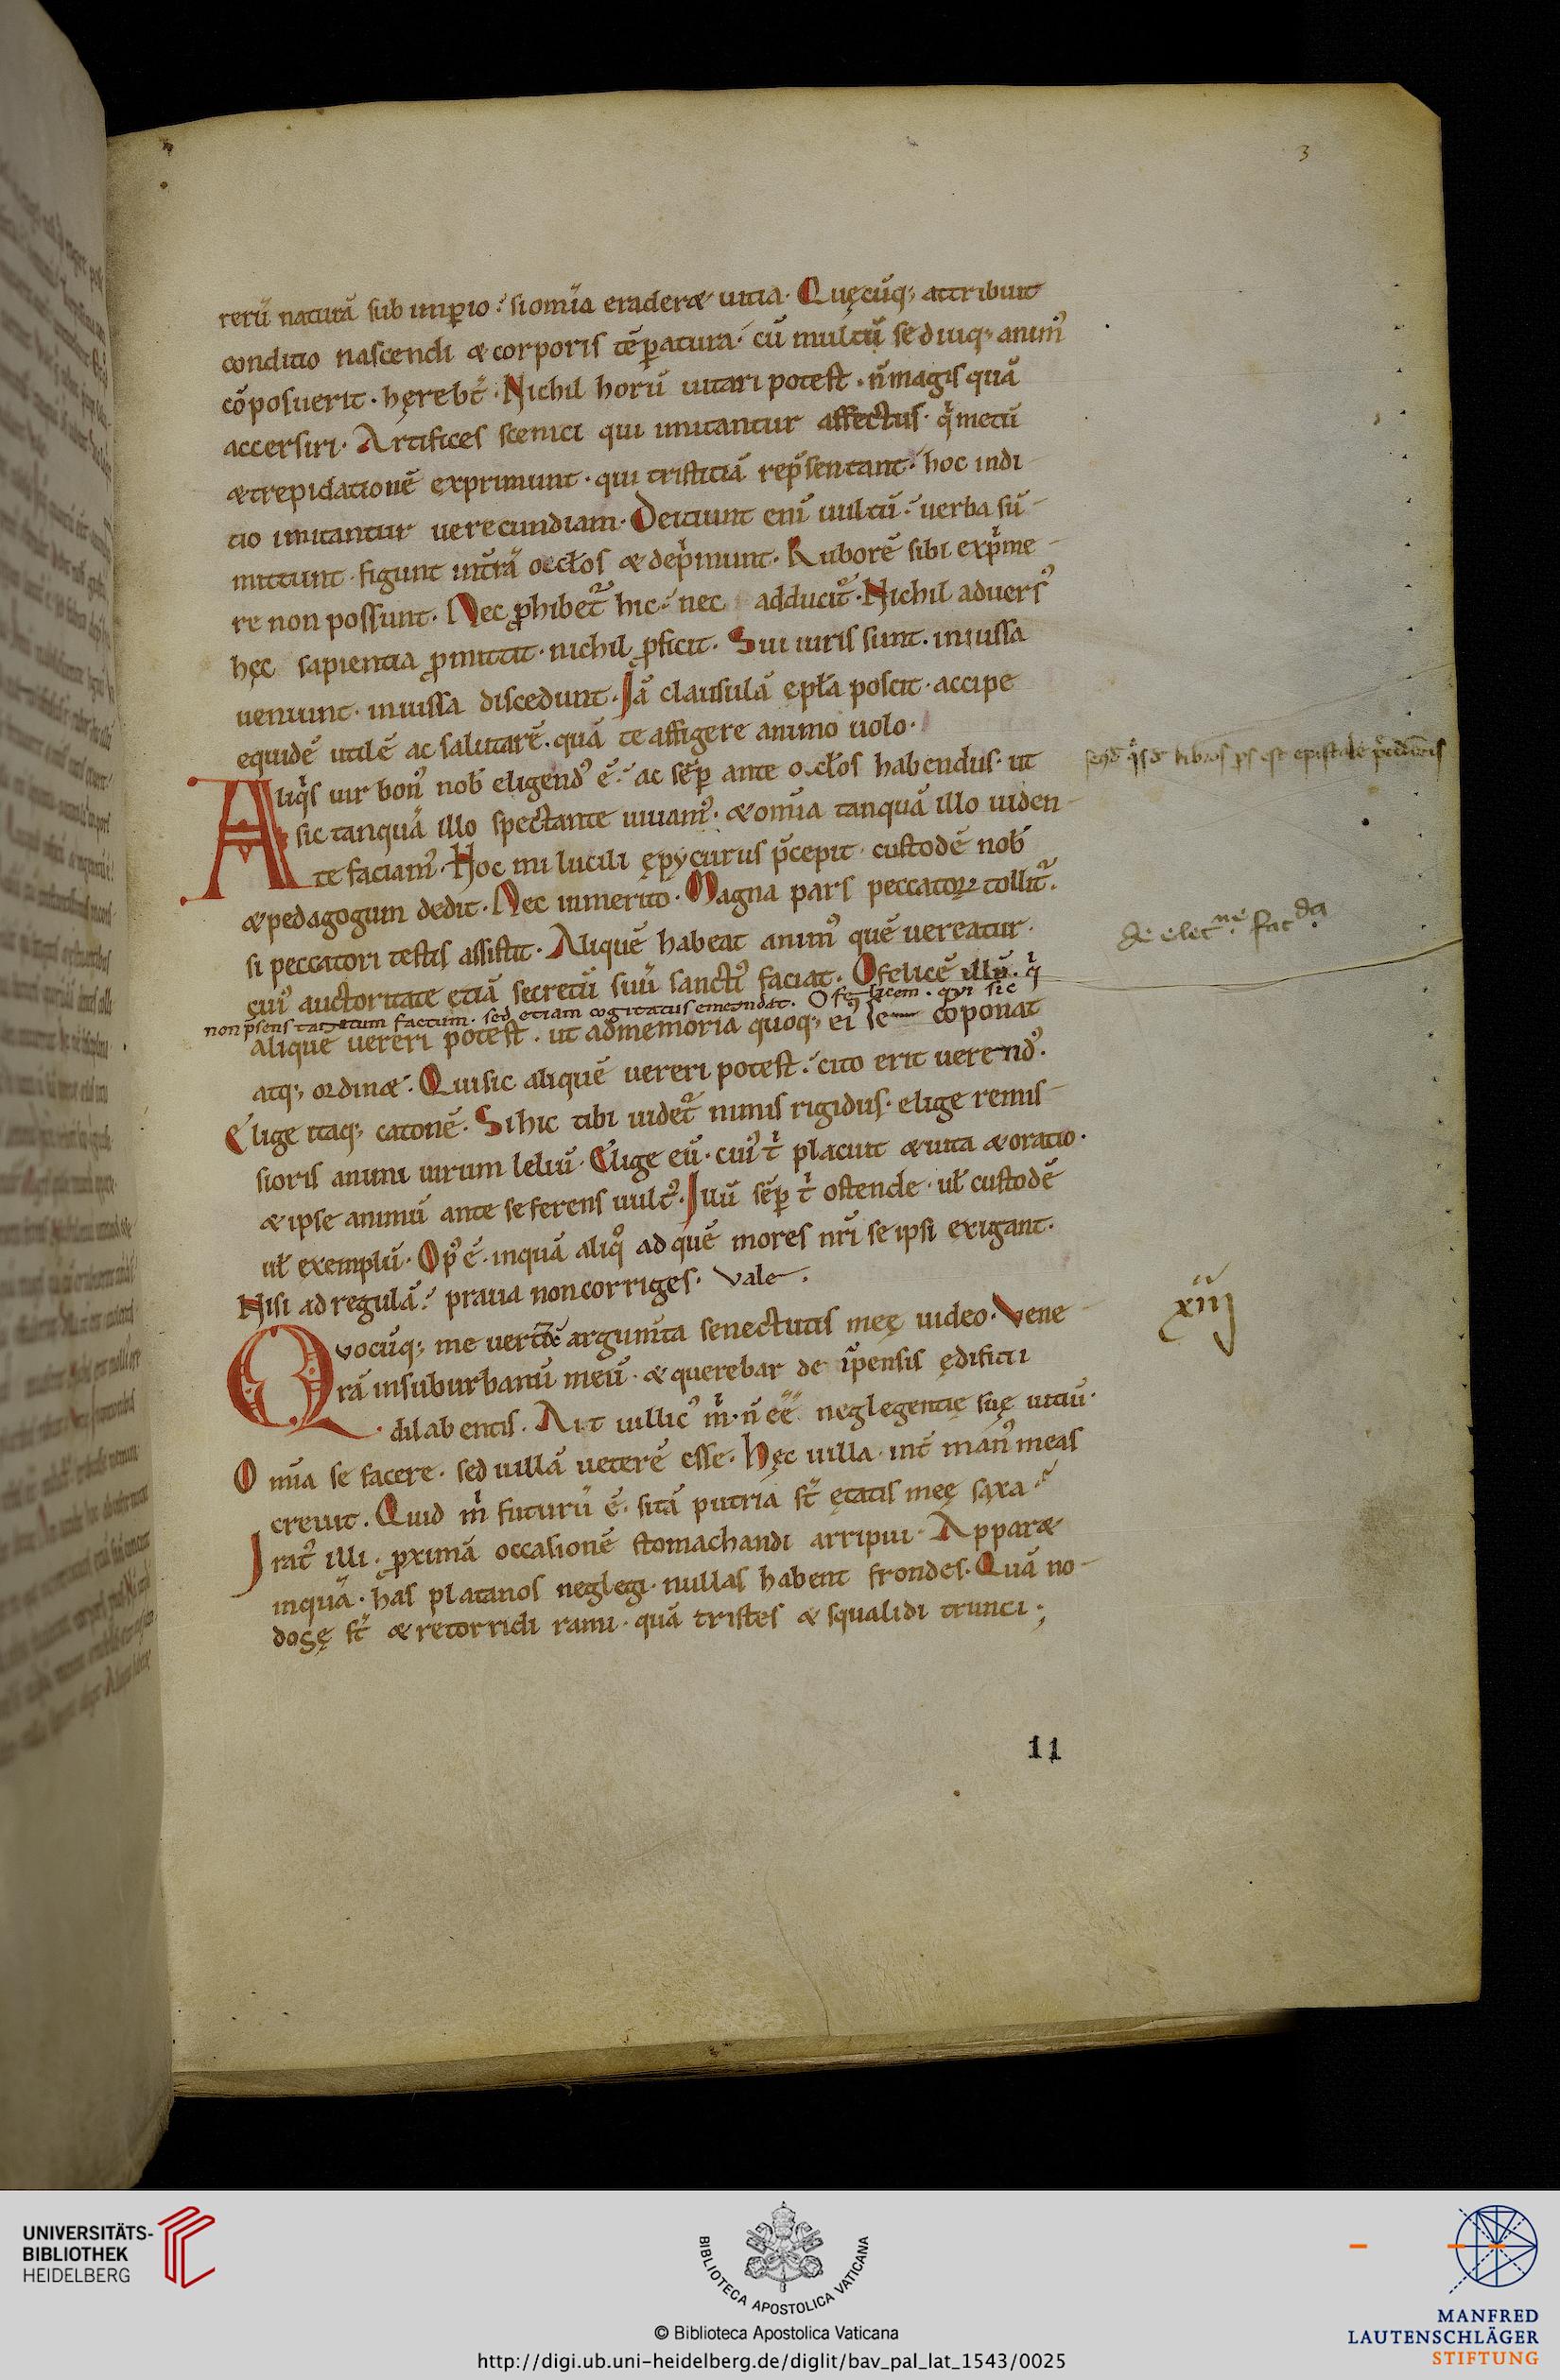 3
rerū naturā sub imꝑio. si omīa eraderet uitia. Quęcūq; attribuit
conditio nascendi & corporis tēꝑatura. cū multū se diuq; anim᾿
cōposuerit. hęrebt̄. Nichil horū uitari potest. n̄ magis quā
accersiri. Artifices scenici qui imitantur affectus. q̇ metū
& trepidationē exprimunt. qui tristiciā rep̄sentant. hoc indi
tio imitantur uerecundiam. Deiciunt enī uultū. uerba sū
mittunt. figunt int̄rā ocłos & dep̍munt. Ruborē sibi exp̍me
re non possunt. Nec ꝓhibet᷑ hic. nec adducit᷑. Nichil aduers᾿
hęc sapientia ꝓmittit. nichil ꝓficit. Sui iuris sunt. iniussa
ueniunt. iniussa discedunt. Iā clausulā epła poscit. accipe
equidē utilē ac salutarē. quā te affigere animo uolo.
Aliq̇s uir bon᾿ nob̄ eligend᾿ ē. ac sēꝑ ante ocłos habendus. ut
sic tanquā illo spectante uiuam᾿. & omīa tanquā illo uiden
te faciam᾿. Hoc mi lucili ępycurus p̄cepit. custodē nob̄
& pedagogum dedit. Nec inmerito. Magna pars peccatoꝝ tollit᷑.
si peccatori testis assistit. Aliquē habeat anim᾿ quē uereatur.
cui᾿ auctoritate etiā secretū suū sancti᾿ faciat. O felicē illū. q̇
non p̄sens tantum factum. sed etiam cogitatus emendat. O felicem. qui sic
aliquē uereri potest. ut ad memoria quoq; ei᾿ se coponat
atq; ordinet. Qui sic aliquē uereri potest. cito erit uerend᾿.
Elige itaq; catonē. Si hic tibi uidet᷑ nimis rigidus. elige remis
sioris animi uirum leliū. Elige eū. cui᾿ t̍ placuit & uita & oratio.
& ipse animū ante se ferens uult᾿. Illū sēꝑ t̍ ostende. uł custodē
uł exemplū. Op᾿ ē. inquā aliq° ad quē mores nr̄i se ipsi exigant.
Nisi ad regulā. praua non corriges. Vale.
Quocūq; me uert̄o argum̄ta senectutis meę uideo. Vene
rā in suburbanū meū. & querebar de īpensis ędificii
dilabentis. Ait uillic᾿ m̍. n̄ ēē neglegentię suę uitiū.
Omīa se facere. sed uillā ueterē esse. Hęc uilla int̄ man᾿ meas
creuit. Quid m̍ futurū ē. si tā putria st̄ ętatis meę saxa
Irat᾿ illi. ꝓximā occasionē stomachandi arripui. Apparet
inquā. has platanos neglegi. nullas habent frondes. Quā no
dosę st̄ & retorridi rami. quā tristes & squalidi trunci;
de elec^ne fac^da
xij
11
UNIVERSITÄTS-
BIBLIOTHEK
HEIDELBERG
BIBLIOTECA APOSTOLICA VATICANA
© Biblioteca Apostolica Vaticana
http://digi.ub.uni-heidelberg.de/diglit/bav_pal_lat_1543/0025
MANFRED
LAUTENSCHLÄGER
STIFTUNG